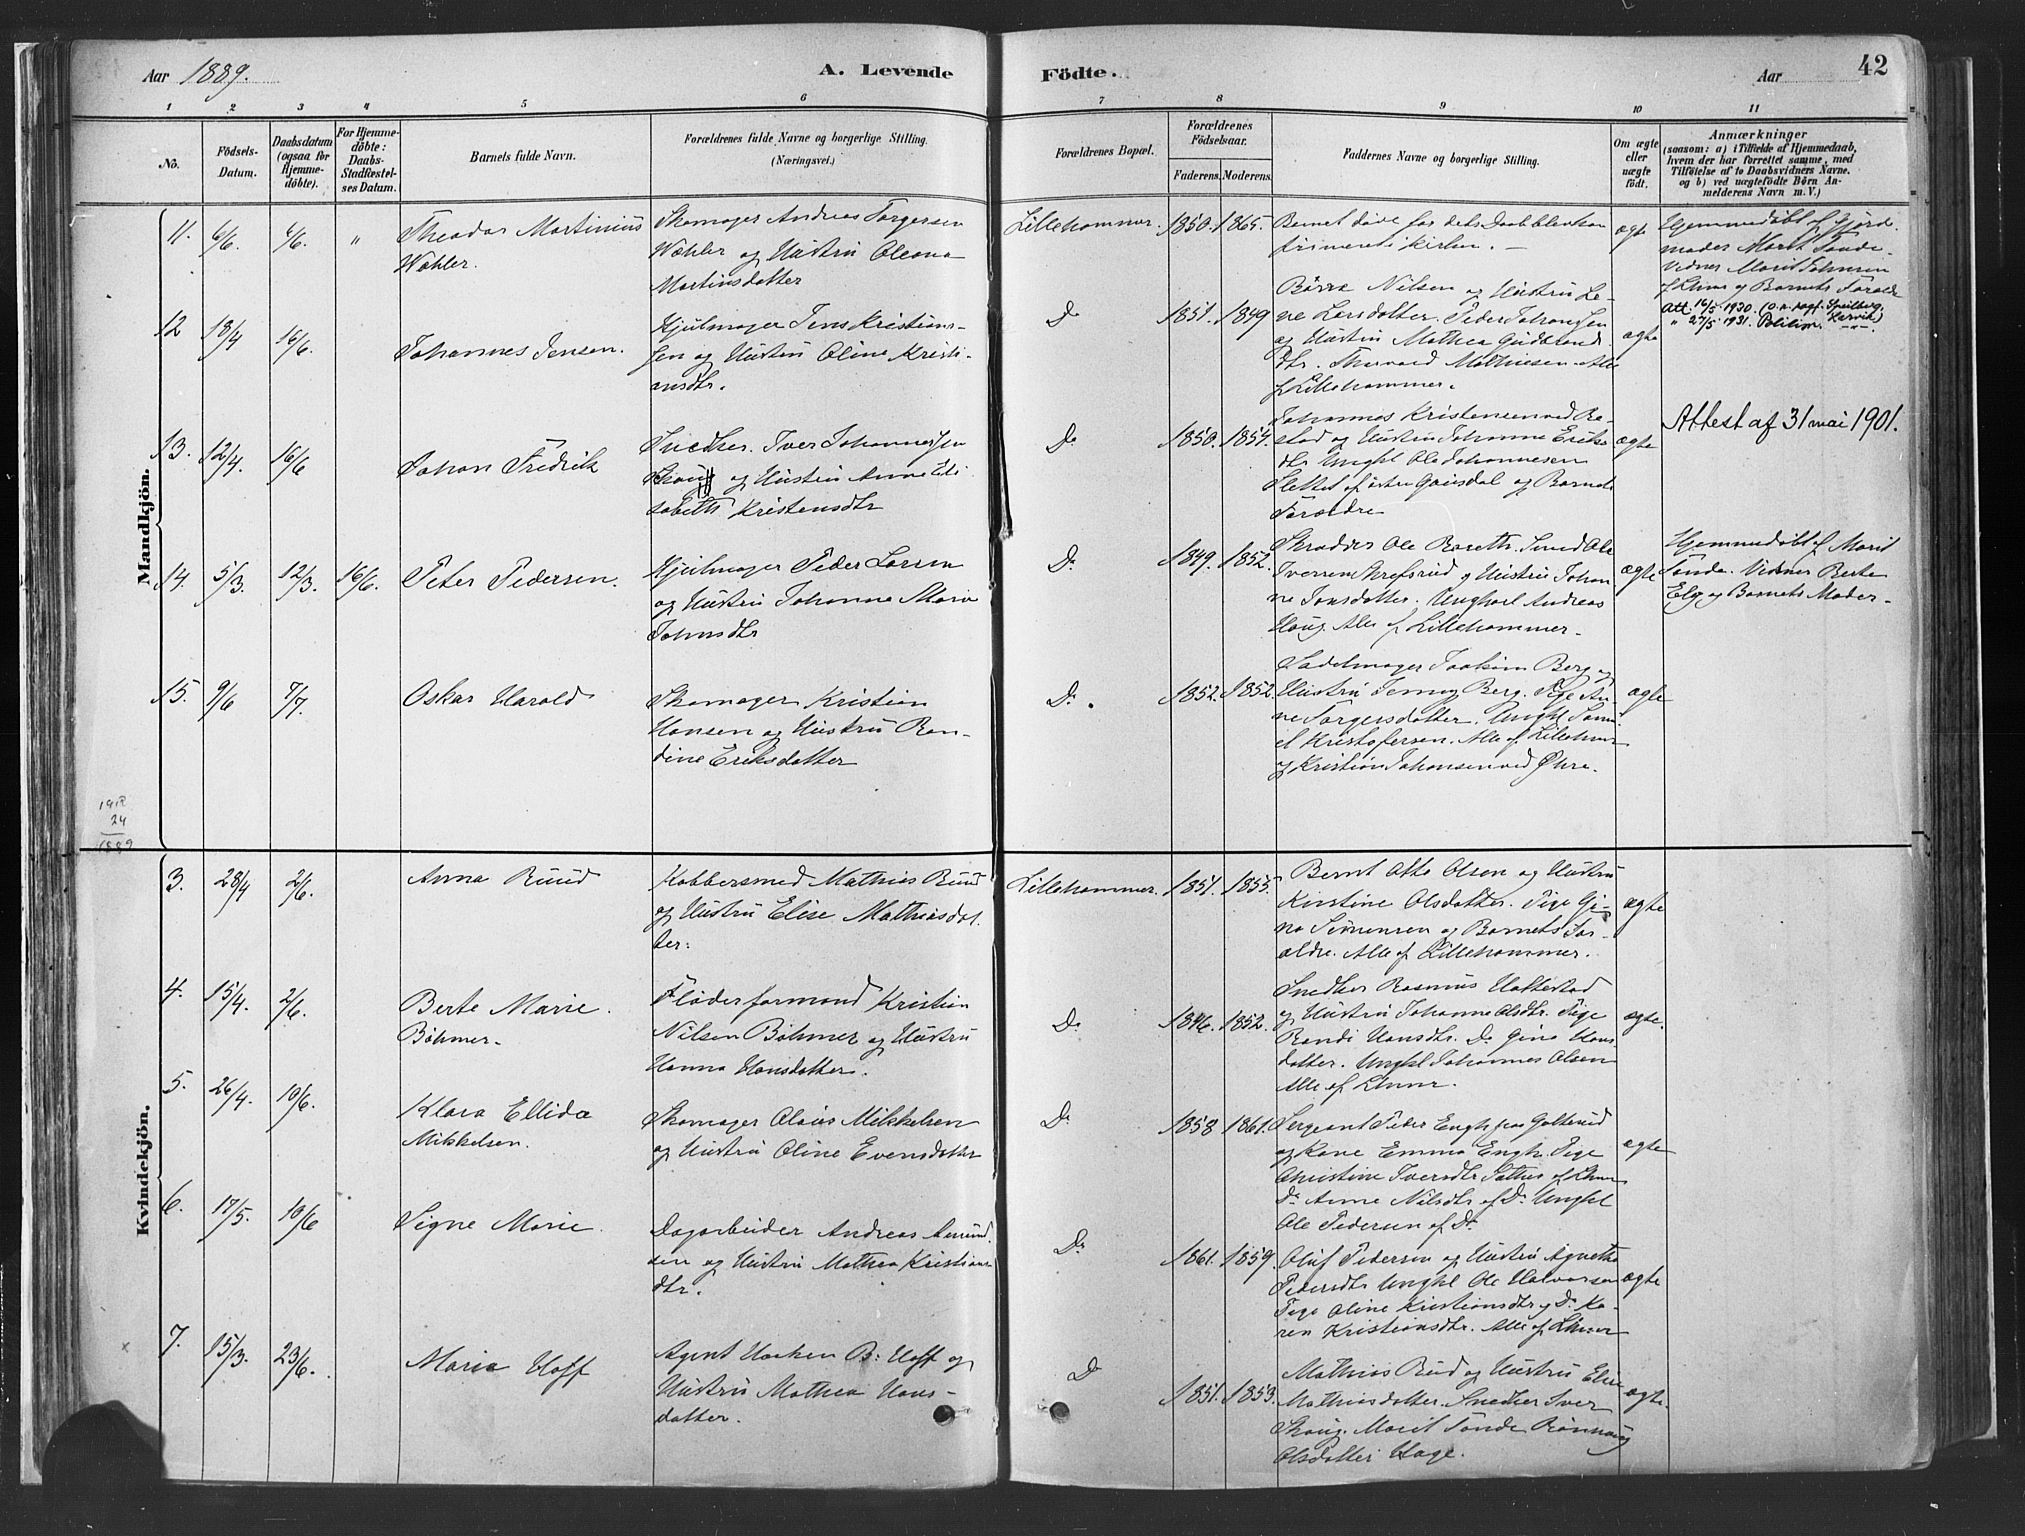 Aar 1889.
A. Levende
Födte.
Aar
42
1 2 3 4 5 6 7 8 9 10 11
No.
Födsels-
Datum.
Daabsdatum
(ogsaa for
Hjemme-
döbte).
For Hjemme-
döbte:
Daabs-
Stadfæstel-
ses Datum.
Barnets fulde Navn.
Forældrenes fulde Navne og borgerlige Stilling.
(Næringsvei.)
Forældrenes Bopæl.
Forældrenes
Födselsaar.
Faderens. Moderens.
Faddernes Navne og borgerlige Stilling.
Om ægte
eller
uægte
födt.
Anmærkninger
(saasom: a) i Tilfælde af Hjemmedaab,
hvem der har forrettet samme, med
Tilföielse af to Daabsvidners Navne,
og b) ved uægtefödte Börn An-
melderens Navn m. V.)
Mandkjön.
11. 6/6. 6/6. "
Theodor Martinius
Wøhler.
Skomager Andreas Torgersen
Wøhler og Hustru Oleana
Martinsdatter
Lillehammer. 1850. 1865.
Barnet døde før dets Daab blev kon
firmeret i Kirken. —
ægte
Hjemmedøbt af Gjord
moder Marit Sande.
Vidner Marit Johnsen
af Lhmr og Barnets Forældr
12 18/4 16/6.
Johannes Jensen.
Hjulmager Jens Kristian-
sen og Hustru Oline Kristi-
ansdtr.
Do 1851. 1849
Børre Nilsen og Hustru Le-
ne Larsdatter. Peder Johansen
og Hustru Mathea Gudbrands
dtr. Thorvald Mathiesen. Alle
f Lillehammer.
ægte
Att. 16/5 1930
" 27/5 1931.
13. 12/4. 16/6
Johan Fredrik
Snedker Iver Johannessen
Skoug og Hustru Anne Eli
sabeth Kristensdtr
Do 1850. 1854.
Johannes Kristensen ved Ba-
stad og Hustru Johanne Eriks
dtr Unghl Ole Johannesen
Slettet af østre Gausdal og Barnets
Forældre
ægte
Attest af 31 mai 1901.
14. 5/3. 12/3 16/6.
Peter Pedersen.
Hjulmager Peder Larsen
og Hustru Johanne Marie
Johnsdtr
Do 1849. 1852.
Skrædder Ole Bareth. Smed Ole
Iversen Skrefsrud og Hustru Johan
ne Jonsdatter. Ungkarl Andreas
Houg. Alle af Lillehammer.
ægte
Hjemmedøbt af Marit
Sande. Vidner Berte
Elg og Barnets Moder.
15. 9/6 7/7.
Oskar Harald
Skomager Kristian
Hansen og Hustru Ran-
dine Eriksdatter
Do. 1852. 1852.
Sadelmager Joakim Berg og
Hustru Jenny Berg. Pige An-
ne Torgersdatter. Unghl Sam-
el Kristofersen. Alle af Lillehmr
og Kristian Johansen ved Øhre.
ægte
1912
24
1889
Kvindekjön.
3. 28/4 2/6.
Anna Ruud
Kobbersmed Mathias Ruud
og Hustru Elise Mathiasdat.
ter.
Lillehammer. 1851. 1855.
Bernt Otto Olsen og Hustru
Kirstine Olsdatter. Pige Gi-
na Simensen og Barnets For-
ældre. Alle af Lillehammer.
ægte
4. 15/4. 2/6.
Berte Marie
Böhmer.
Fløderformand Kristian
Nilsen Böhmer og Hustru
Hanna Hansdatter.
Do 1846. 1852.
Snedker Rasmus Hattestad
og Hustru Johanne Olsdtr. Pige
Randi Hansdtr. Do Gina Hans
datter. Unghl Johannes Olsen
Alle af Lhmr.
ægte.
5. 26/4. 10/6.
Klara Ellida
Mikkelsen.
Skomager Olaus Mikkelsen
og Hustru Oline Evensdatter
Do 1858 1861.
Sergeant Peder Engh paa Golterud
og Kone Emma Engh. Pige
Christine Iversdtr Sathus af Lhmr
Do Anne Nilsdtr af Do Unghl
Ole Pedersen af Do
ægte
6. 17/5. 10/6
Signe Marie.
Dagarbeider Andreas Amund
sen og Hustru Mathea Kristians
dtr.
Do 1861. 1859.
Oluf Pedersen og Hustru Agnethe
Pedersdtr Unghl Ole Halvorsen
Pige Oline Kristiansdtr og Do Ka-
ren Kristiansdtr. Alle af Lhmr
ægte
7. 15/3. 23/6.
Maria Hoff
Agent Haaken B. Hoff og
Hustru Mathea Hans-
datter.
Do 1851. 1853.
Mathias Rud og Hustru Elise
Mathiasdatter. Snedker Iver
Skoug. Marit Sande Rønnaug
Olsdatter Hage.
ægte.